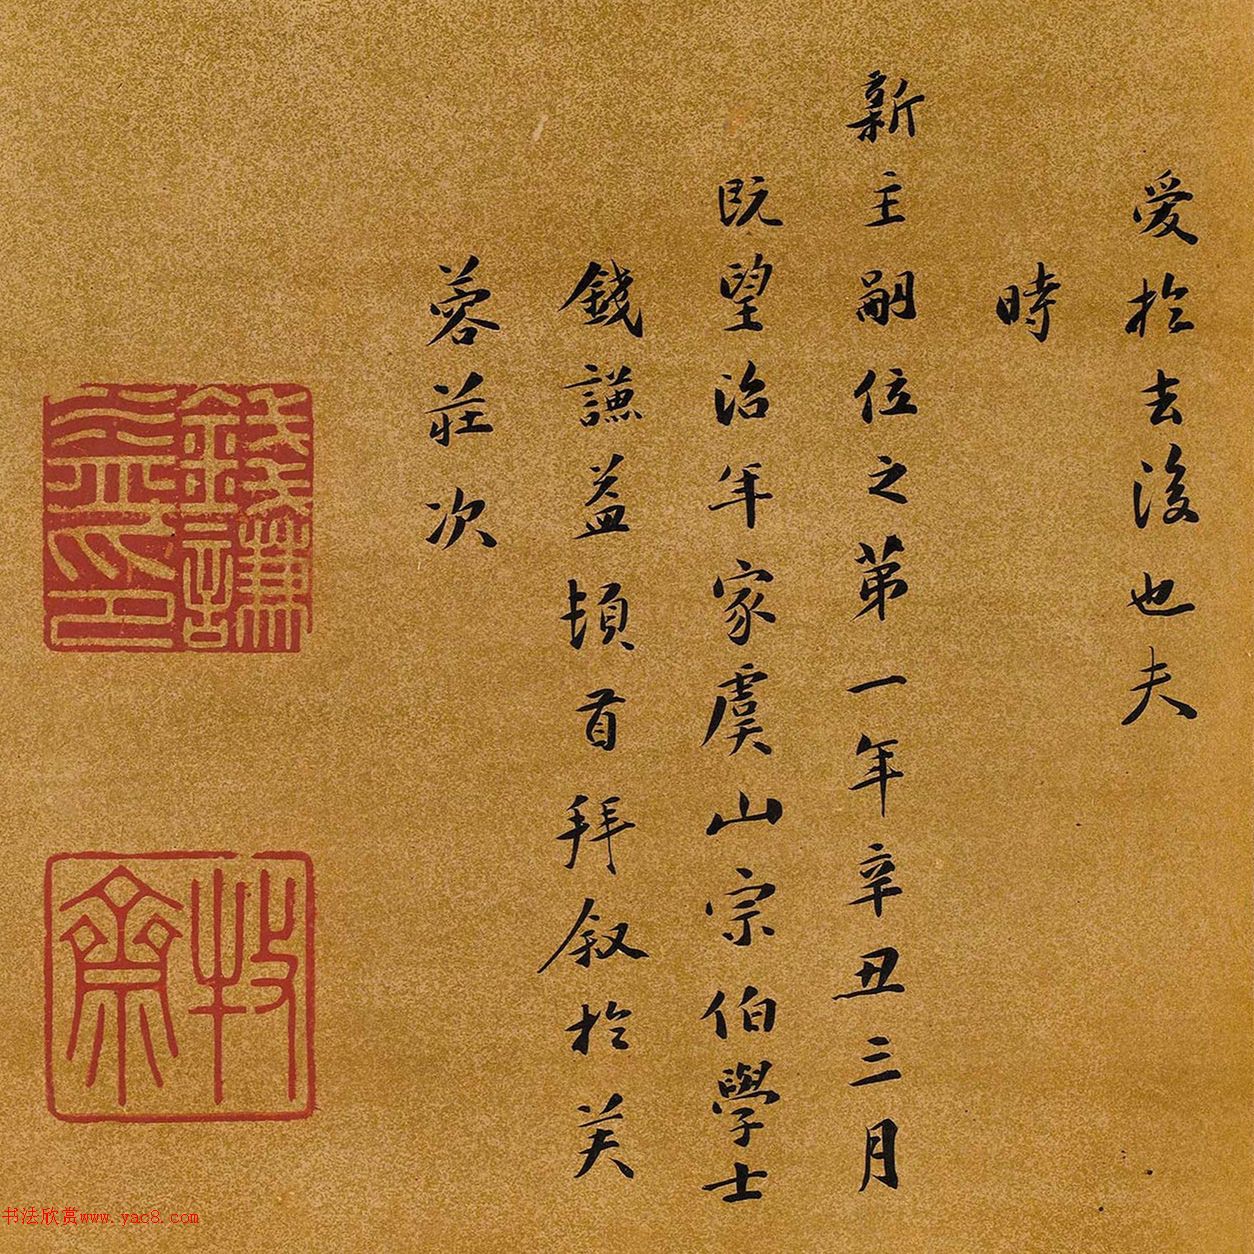 愛於去後也夫
時
新主嗣位之第一年辛丑三月
既望治年家虞山宗伯學士
錢謙益頓首拜叙於芙
蓉莊次
錢謙益印
牧齋
书法欣赏www.yac8.com